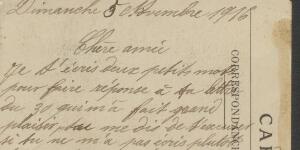 Dimanche 5 Novembre 1916
Chère amie
Je t'écris deux petits mots
pour faire réponse à ta
du 30 qui m'a fait grand
plaisir, tu me dis de
si tu ne m'a pas écris plutot
CORRESPONDANCE
CA